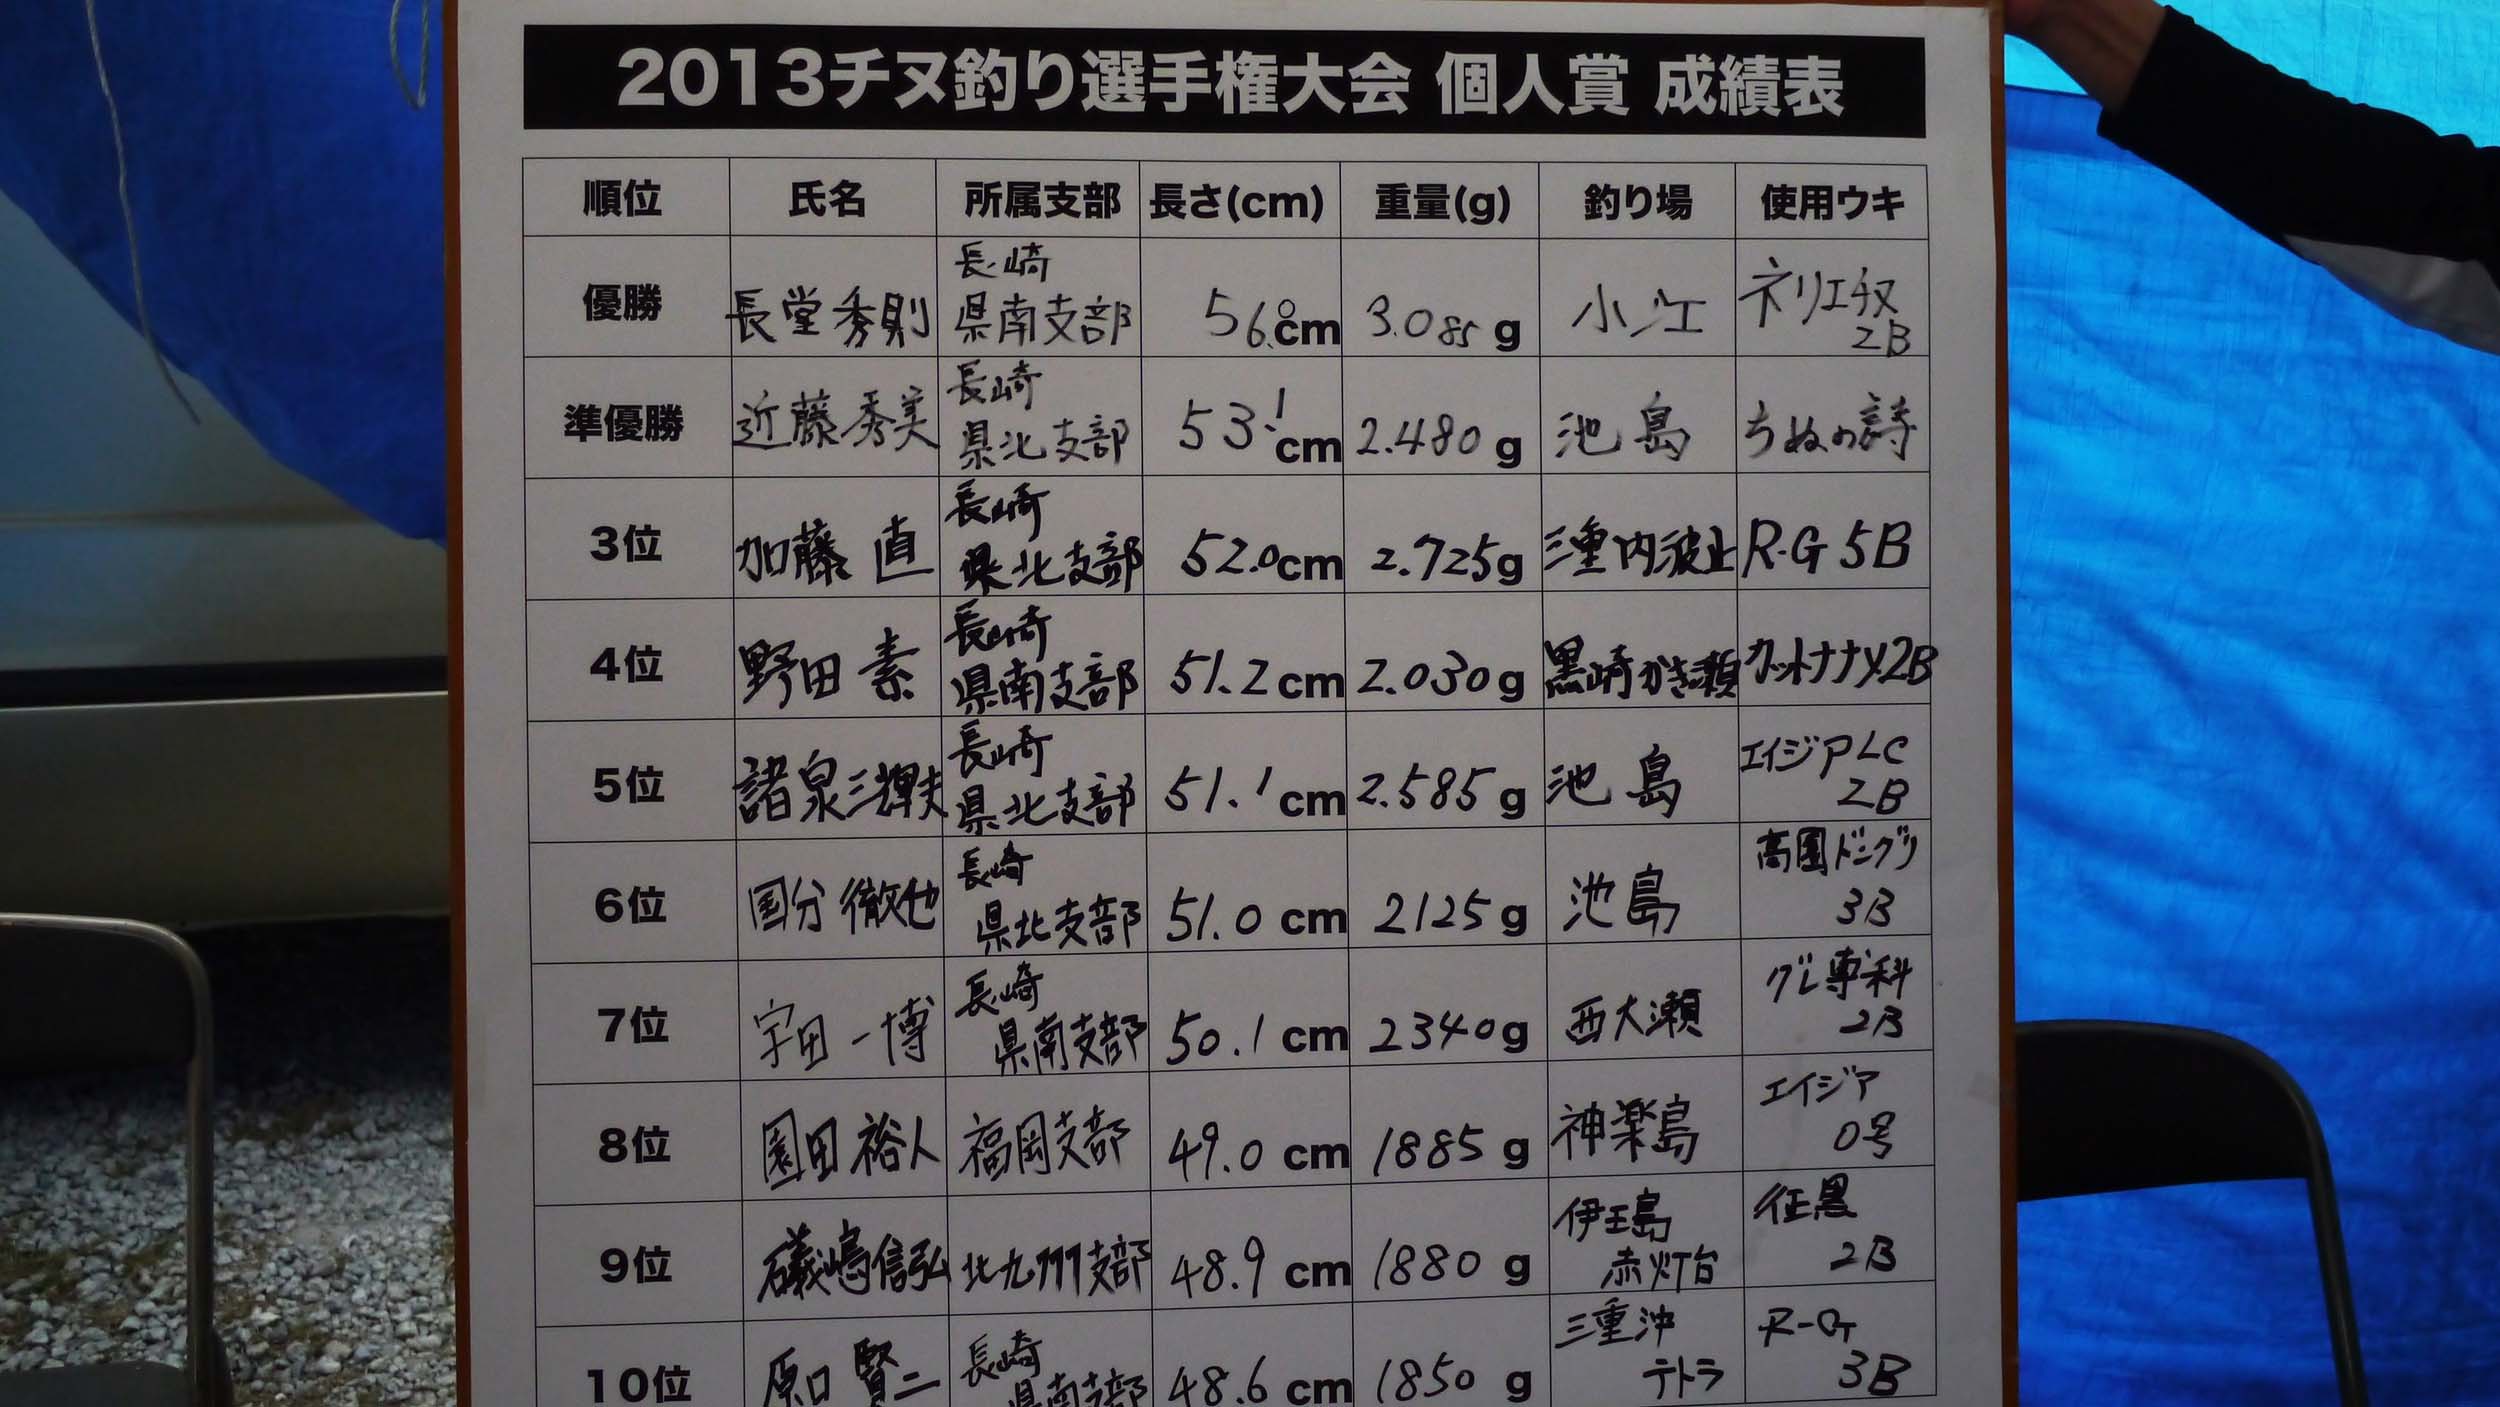 2013チヌ釣り選手権大会 個人賞 成績表
順位 氏名 所属支部 長さ(cm) 重量(g) 釣り場 使用ウキ
優勝 長堂秀則 長崎県南支部 56.0cm 3.085g 小江 ネリエチヌ2B
準優勝 近藤秀美 長崎県北支部 53.1cm 2.480g 池島 ちぬの詩
3位 加藤 直 長崎県北支部 52.0cm 2.725g 三重内波止 R-G 5B
4位 野田 素 長崎県南支部 51.2cm 2.030g 黒崎かき瀬 カットナナメ2B
5位 諸泉三輝夫 長崎県北支部 51.1cm 2.585g 池島 エイジアLC 2B
6位 国分徹也 長崎県北支部 51.0cm 2125g 池島 高園ドングリ 3B
7位 宇田一博 長崎県南支部 50.1cm 2340g 西大瀬 グレ専科 2B
8位 園田裕人 福岡支部 49.0cm 1885g 神楽島 エイジア 0号
9位 礒嶋信弘 北九州支部 48.9cm 1880g 伊王島赤灯台 征黒 2B
10位 原口賢二 長崎県南支部 48.6cm 1850g 三重沖テトラ R-G 3B